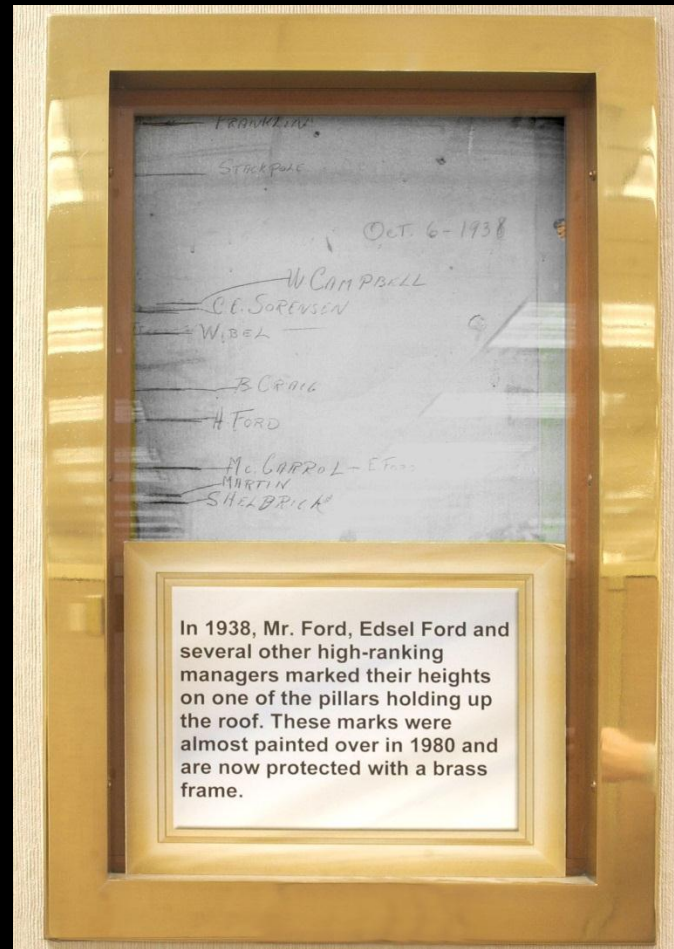 FRANKLINE
STACKPOLE
OCT. 6-1938
W CAMPBELL
C.E. SORENSEN
WIBEL
B CRAIG
H. FORD
MC. CARROL - E FORD
MARTIN
SHELBRICK
In 1938, Mr. Ford, Edsel Ford and
several other high-ranking
managers marked their heights
on one of the pillars holding up
the roof. These marks were
almost painted over in 1980 and
are now protected with a brass
frame.